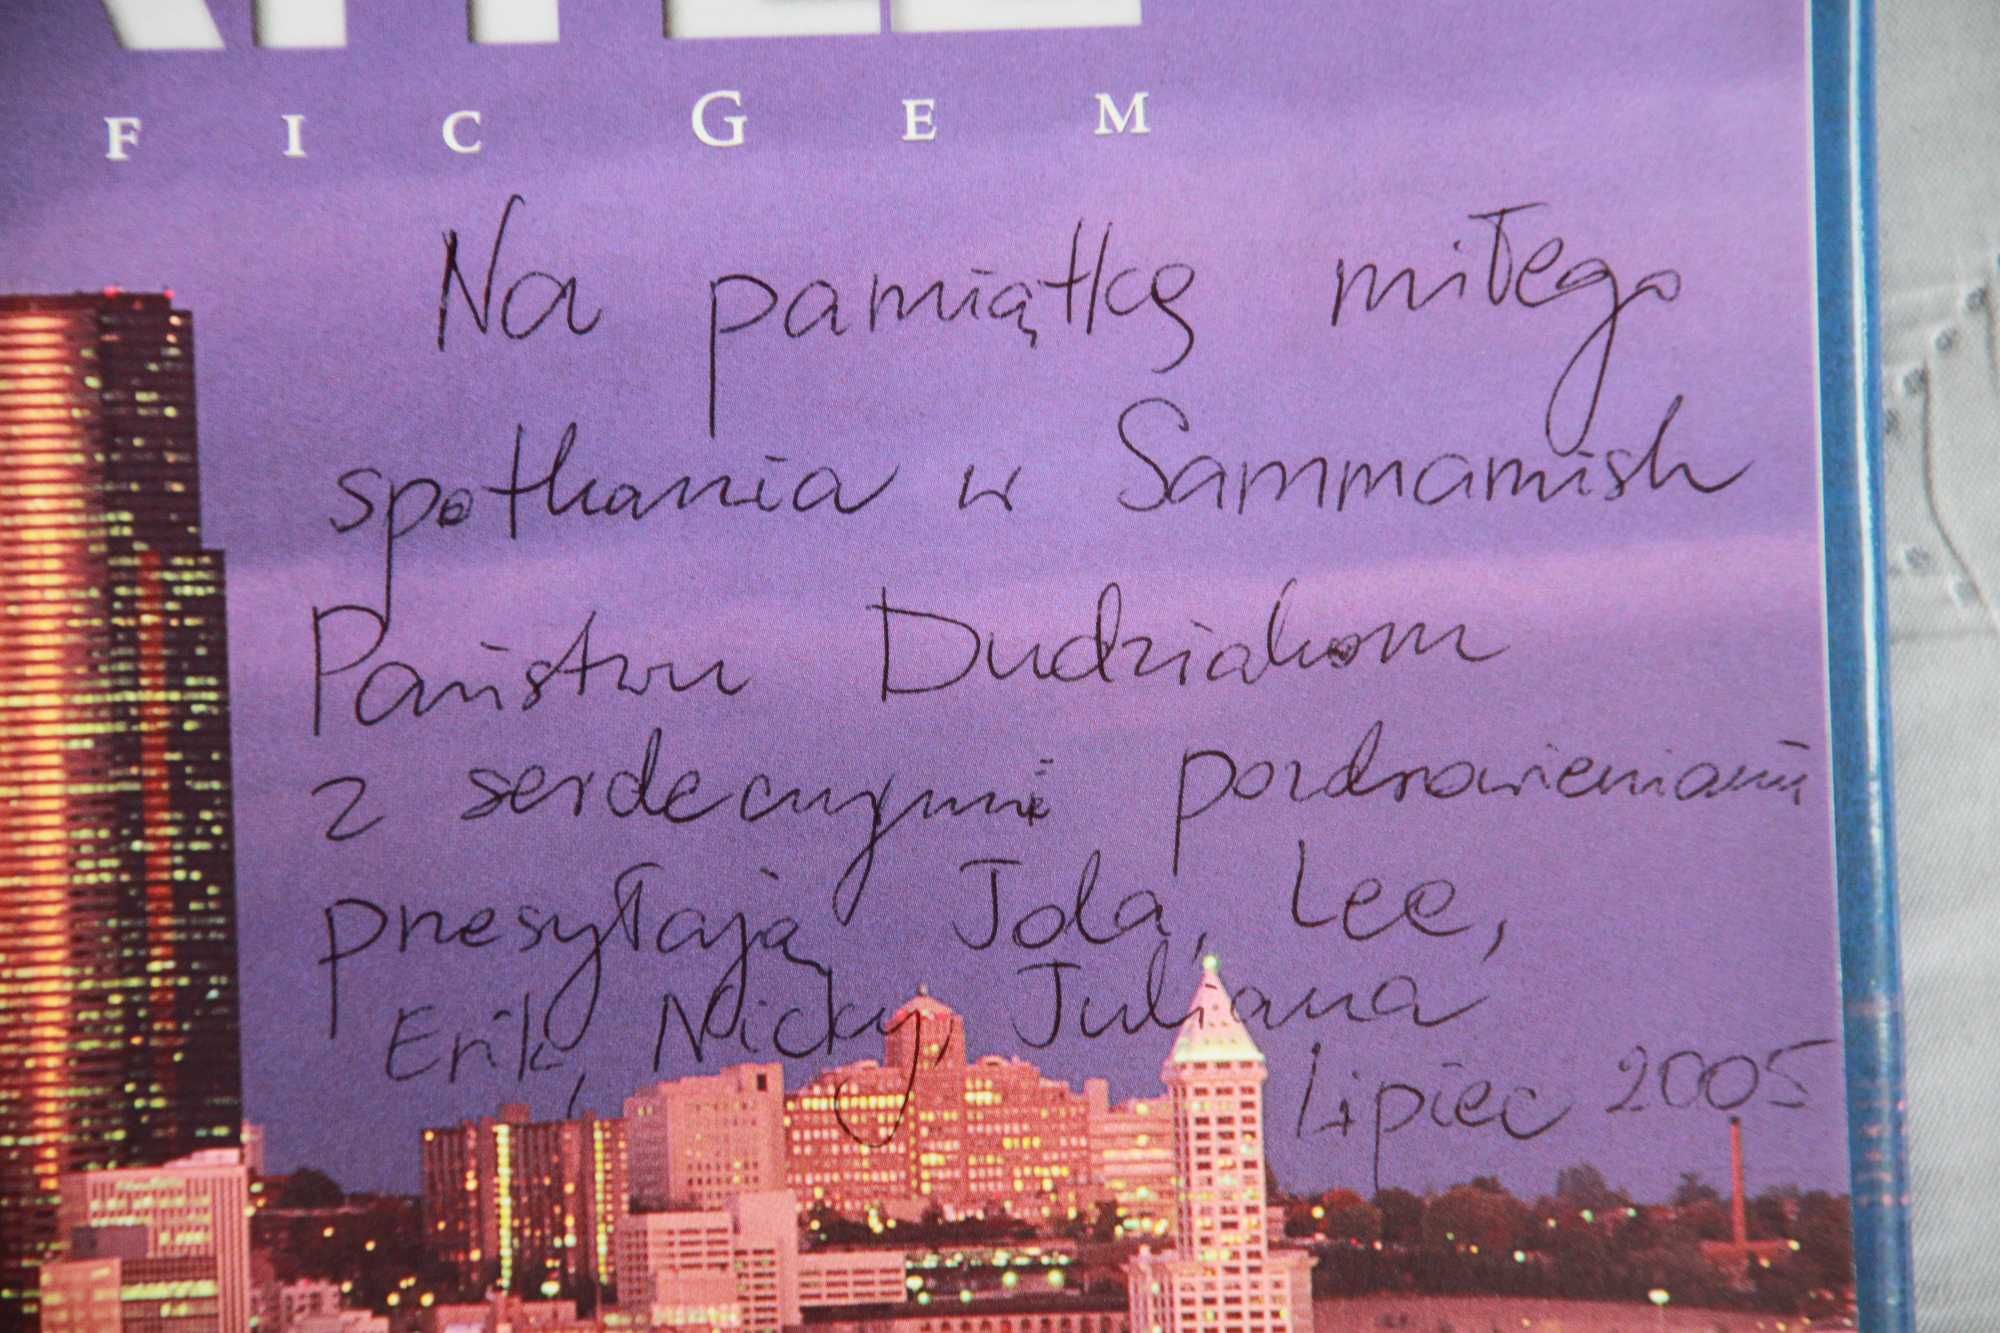 ATTLE
FIC GEM
Na pamiątkę miłego
spotkania w Sammamish
Państwu Dudziakom
z serdecznymi pozdrowieniami
przesyłają Jola, Lee,
Erik, Nicky, Juliana
Lipiec 2005